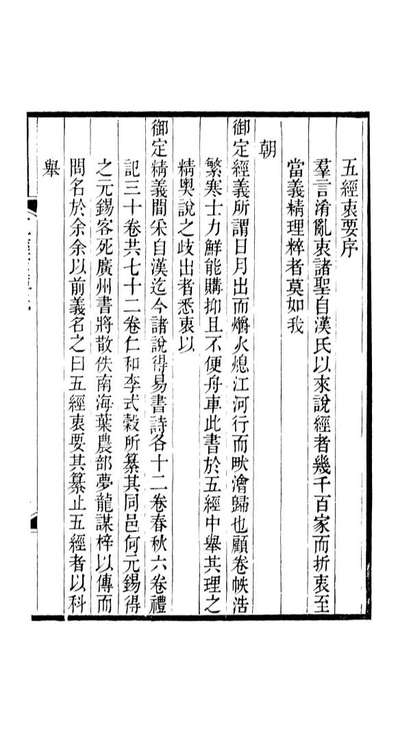 五經衷要序
羣言淆亂衷諸聖自漢氏以來說經者幾千百家而折衷至
當義精理粹者莫如我
朝
御定經義所謂日月出而爝火熄江河行而畎澮歸也顧卷帙浩
繁寒士力鮮能購抑且不便舟車此書於五經中舉其理之
精輿說之歧出者悉衷以
御定精義間宋自漢迄今諸說得易書詩各十二卷春秋六卷禮
記三十卷共七十二卷仁和李式穀所纂其同邑何元錫得
之元錫客死廣州書將散佚南海葉農部夢龍謀梓以傳而
問名於余余以前義名之曰五經衷要其纂止五經者以科
舉